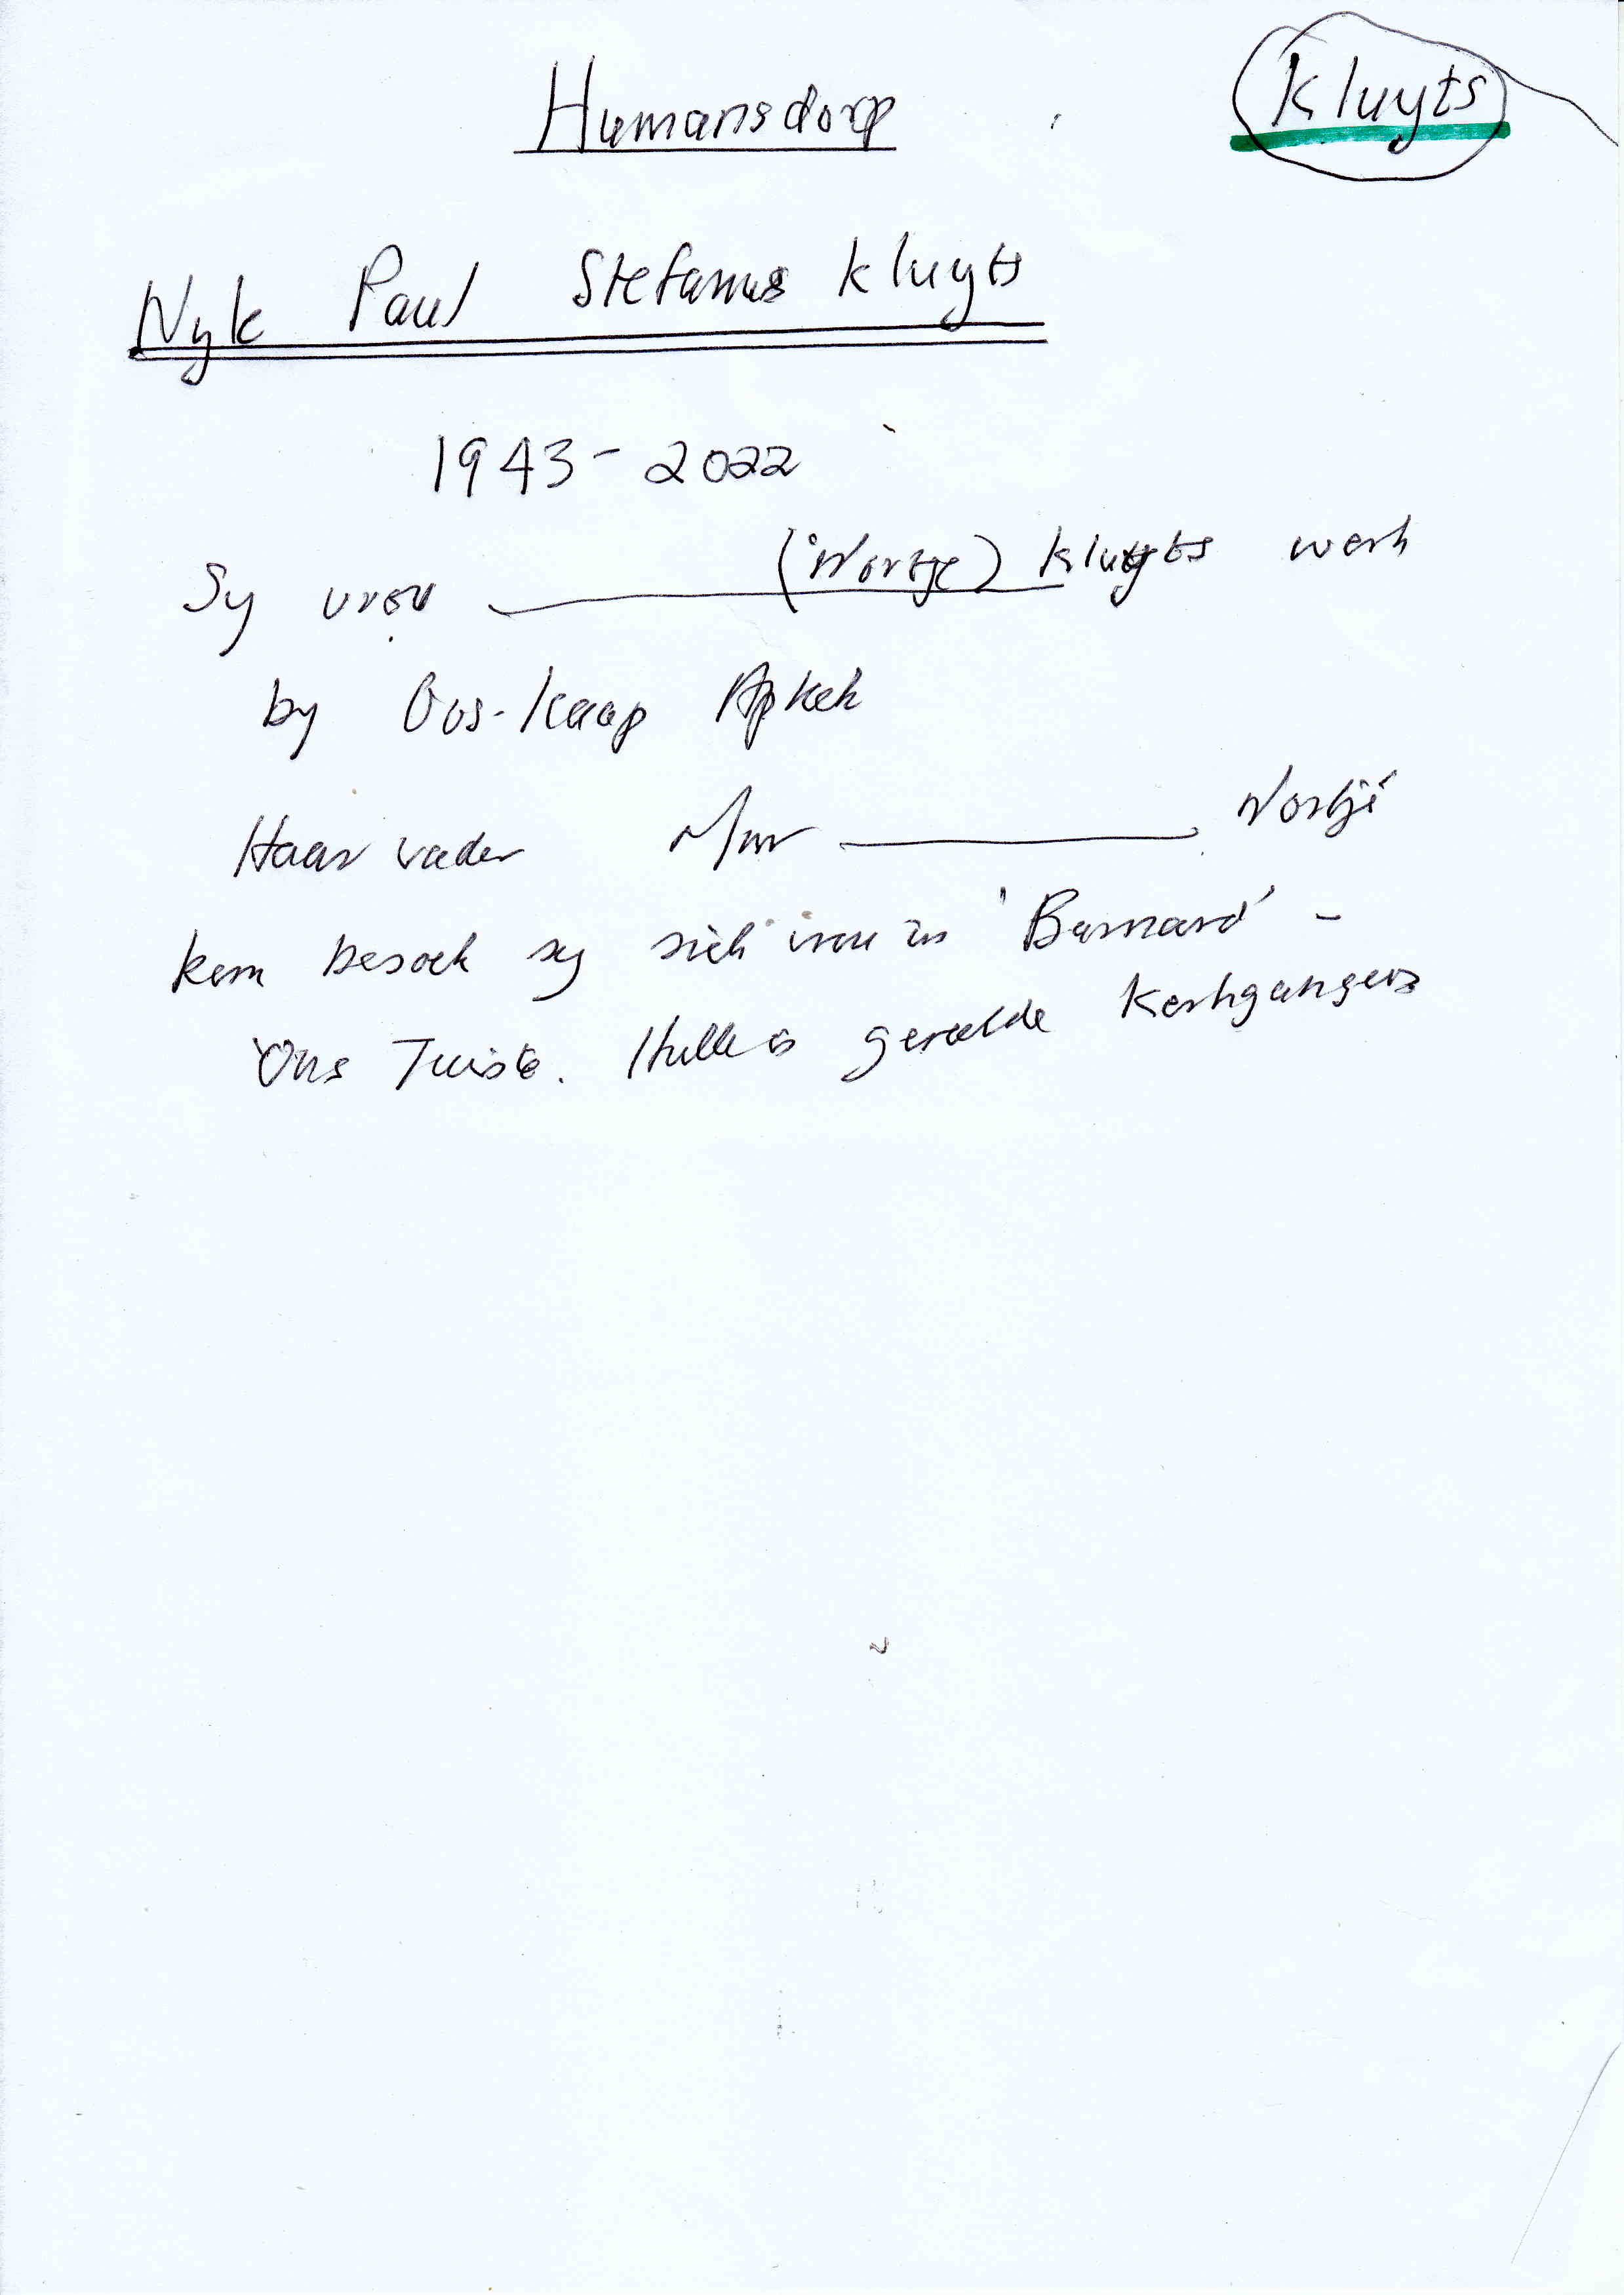 Humansdorp
Kluyts
Nyk Paul Stefanus Kluyts
1943 - 2022
Sy vrou ________ (Nortje) Kluyts werk
by Oos-Kaap Apkek
Haar vader Mnr ________ Nortjé
kom besoek sy siek vrou in 'Barnard' -
Ons Tuiste. Hulle is gereelde Kerkgangers